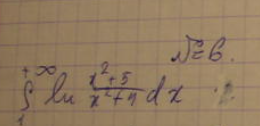 № 6.
\int_{1}^{+\infty} \ln \frac{x^2+5}{x^2+4} dx